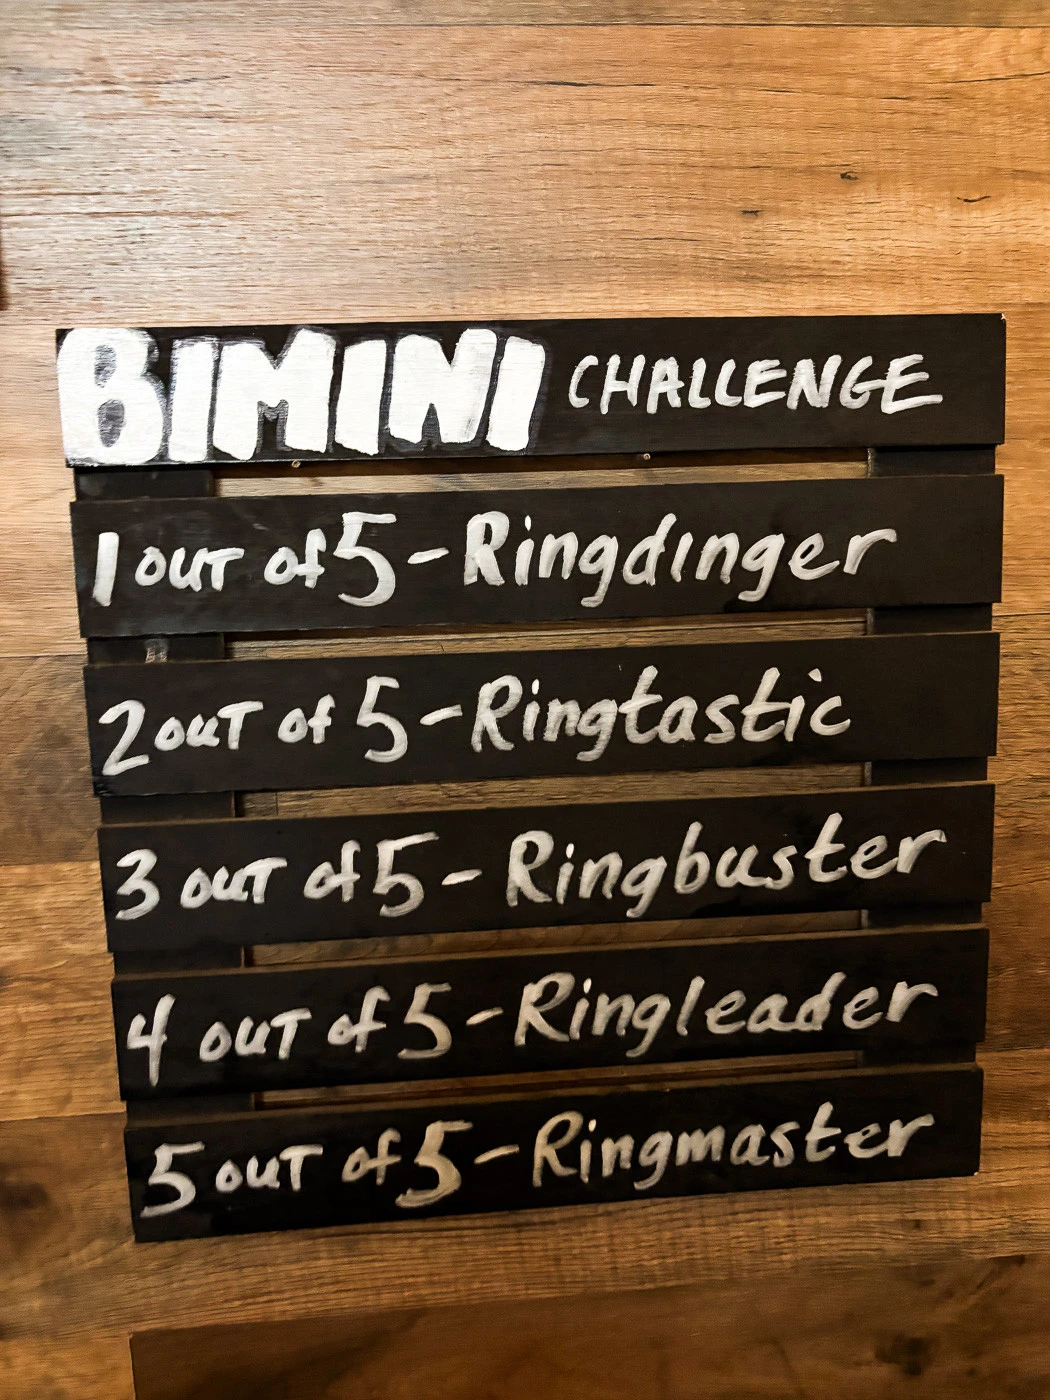 BIMINI CHALLENGE
1 out of 5 - Ringdinger
2 out of 5 - Ringtastic
3 out of 5 - Ringbuster
4 out of 5 - Ringleader
5 out of 5 - Ringmaster